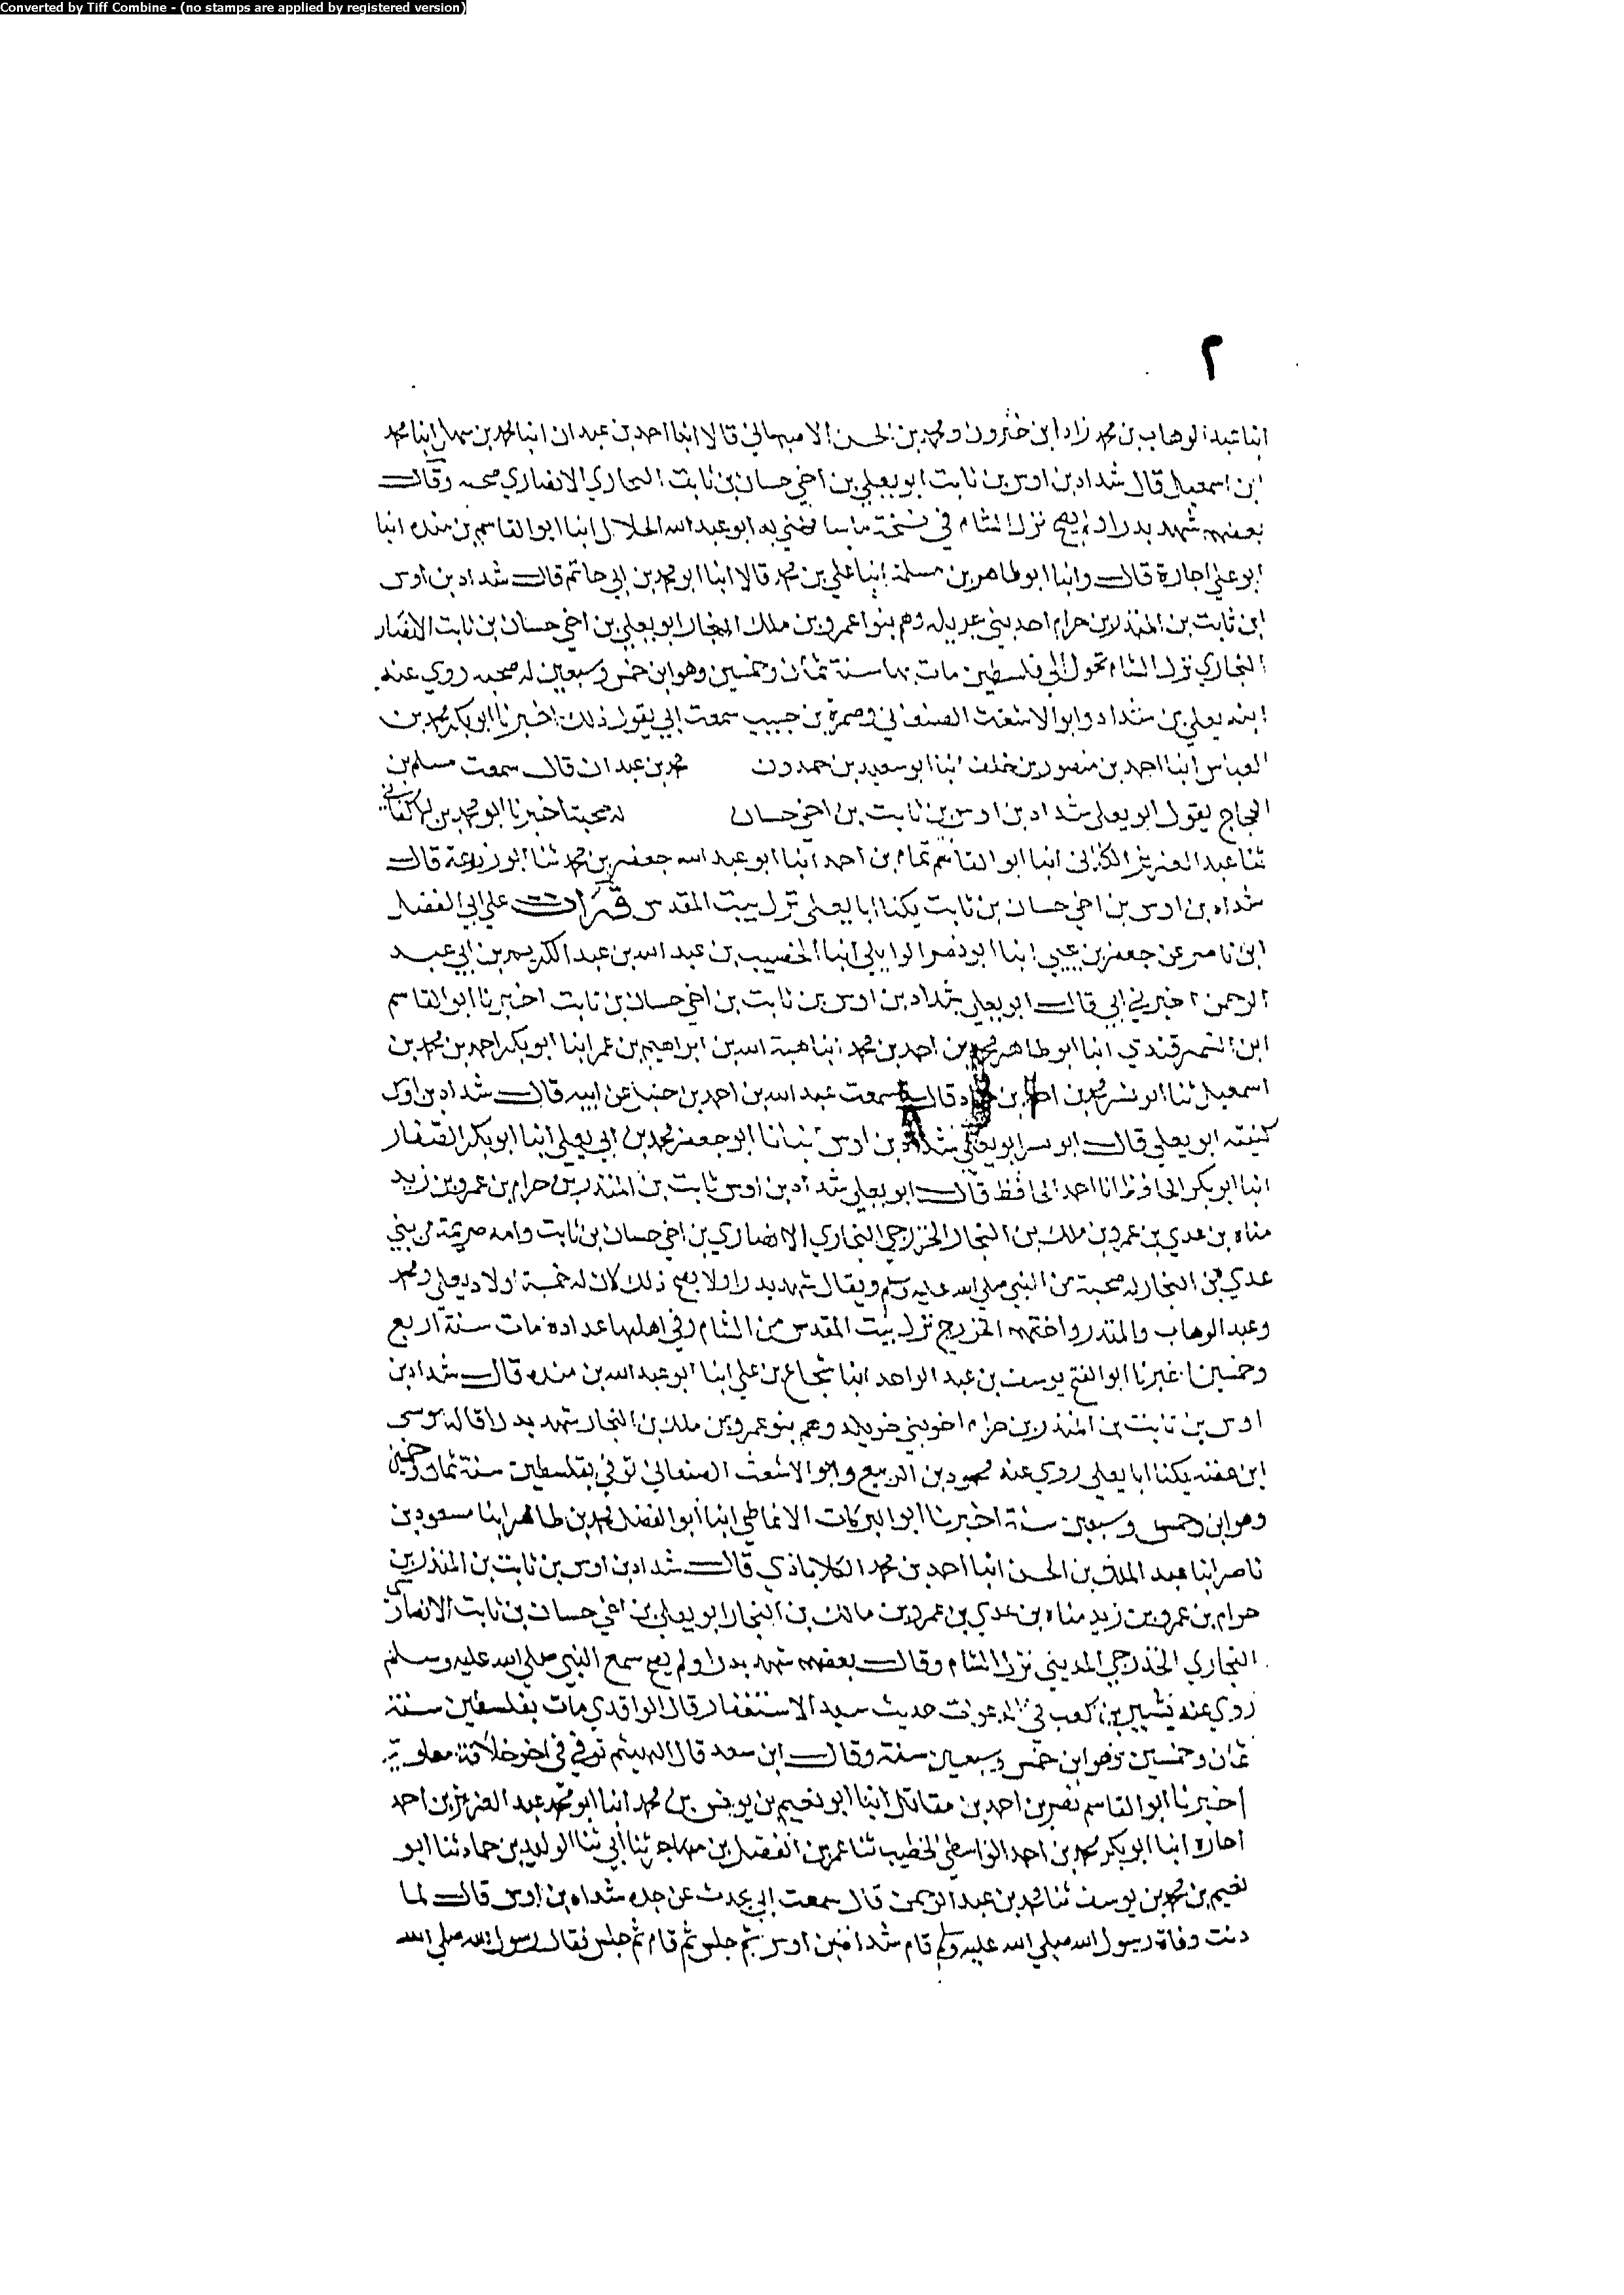 Converted by Tiff Combine - (no stamps are applied by registered version)
٢
انبا عبد الوهاب بن محمد زاد ابن خيرون ومحمد بن الحسن الاصبهاني قالا انبا احمد بن عبدان انبا محمد بن سهل انبا محمد
ابن اسمعيل قال شداد بن اوس بن ثابت ابو يعلي بن اخي حسان بن ثابت النجاري الانصاري صحبه وقال
بعضهم شهد بدرا ولم يصح نزل الشام في نسخة ما شافهني به ابو عبد الله الخلال انبا ابو القاسم بن منده انبا
ابو علي اجازة قال وانبا ابو طاهر بن مسلمة انبا علي بن محمد قالا انبا ابو محمد بن ابي حاتم قال شداد بن اوس
ابن ثابت بن المنذر بن حرام احد بني عديله وهم بنوا عمرو بن ملك النجار ابو يعلي بن اخي حسان بن ثابت الانصار
النجاري نزل الشام تحول الي فلسطين مات بها سنة ثمان وخمسين وهو ابن خمس وسبعين له صحبه روي عنه
ابنه يعلي بن شداد وابو الاشعث الصنعاني وضمرة بن حبيب سمعت ابي يقول ذلك اخبرنا ابو بكر محمد بن
العباس انبا احمد بن منصور بن خلف انبا ابو سعيد بن حمدون محمد بن عبدان قال سمعت مسلم بن
الحجاج يقول ابو يعلي شداد بن اوس بن ثابت بن اخي حسان له صحبة اخبرنا ابو محمد بن الاكفاني
ثنا عبد العزيز الكتاني انبا ابو القاسم تمام بن احمد انبا ابو عبد الله جعفر بن محمد ثنا ابو زرعة قال
شداد بن اوس بن اخي حسان بن ثابت يكنا ابا يعلي نزل بيت المقدس قرات علي ابي الفضل
ابن ناصر عن جعفر بن يحيي انبا ابو نصر الوايلي انبا الخصيب بن عبد الله بن عبد الكريم بن ابي عبد
الرحمن اخبرني ابي قال ابو يعلي شداد بن اوس بن ثابت بن اخي حسان بن ثابت اخبرنا ابو القاسم
ابن السمرقندي انبا ابو طاهر محمد بن احمد بن محمد انبا هبة الله بن ابراهيم بن عمر انبا ابو بكر احمد بن محمد بن
اسمعيل ثنا ابو بشر محمد بن احمد بن حماد قال سمعت عبد الله بن احمد بن حنبل عن ابيه قال شداد بن اوس
كنيته ابو يعلي قال ابو بسر ابو يعلي شداد بن اوس انبانا ابو جعفر محمد بن ابي يعلي انبا ابو بكر الصفار
انبا ابو بكر الحافظ انا احمد الحافظ قال ابو يعلي شداد بن اوس ثابت بن المنذر بن حرام بن عمرو بن زيد
مناه بن عدي بن عمرو بن ملك بن النجار الخزرجي النجاري الانصاري بن اخي حسان بن ثابت وامه صريمة من بني
عدي بن النجار له صحبة من النبي صلي الله عليه وسلم ويقال شهد بدرا ولا يصح ذلك كان له خمسة اولاد يعلي ومحمد
وعبد الوهاب والمنذر واختهم الخزرج نزل بيت المقدس من الشام وفي اهلها عداده مات سنة اربع
وخمسين اخبرنا ابو الفتح يوسف بن عبد الواحد انبا شجاع بن علي انبا ابو عبد الله بن منده قال شداد بن
اوس بن ثابت بن المنذر بن حرام اخو بني خويلد وهم بنو عمرو بن ملك بن النجار شهد بدرا قاله موسى
ابن عقبه يكنا ابا يعلي روي عنه محمود بن الربيع وابو الاشعث الصنعاني توفي بفلسطين سنة ثمان وخمسين
وهو ابن خمس وسبعين سنة اخبرنا ابو البركات الانماطي انبا ابو الفضل محمد بن طاهر انبا مسعود بن
ناصر انبا عبد الملك بن الحسن انبا احمد بن محمد الكلاباذي قال شداد بن اوس بن ثابت بن المنذر بن
حرام بن عمرو بن زيد مناه بن عدي بن عمرو بن مالك بن النجار ابو يعلي بن اخي حسان بن ثابت الانصاري
النجاري الخزرجي المديني نزل الشام وقال بعضهم شهد بدرا ولم يصح سمع النبي صلي الله عليه وسلم
روي عنه بشير بن كعب في الدعوات حديث سيد الاستغفار قال الواقدي مات بفلسطين سنة
ثمان وخمسين وهو ابن خمس وسبعين سنة وقال ابن سعد قال الهيثم توفي في اخر خلافة معاوية
اخبرنا ابو القاسم نصر بن احمد بن مقاتل انبا ابو نعيم بن يونس بن محمد انبا ابو محمد عبد العزيز بن احمد
اجازه انبا ابو بكر محمد بن احمد الواسطي الخطيب ثنا عمر بن الفضل بن مهاجر ثنا أبي ثنا الوليد بن حماد ثنا ابو
نعيم بن محمد بن يوسف ثنا محمد بن عبد الرحمن قال سمعت ابي يحدث عن جده شداد بن اوس قال لما
دنت وفاة رسول الله صلي الله عليه وسلم قام شداد بن اوس ثم جلس ثم قام ثم جلس فقال رسول الله صلي الله